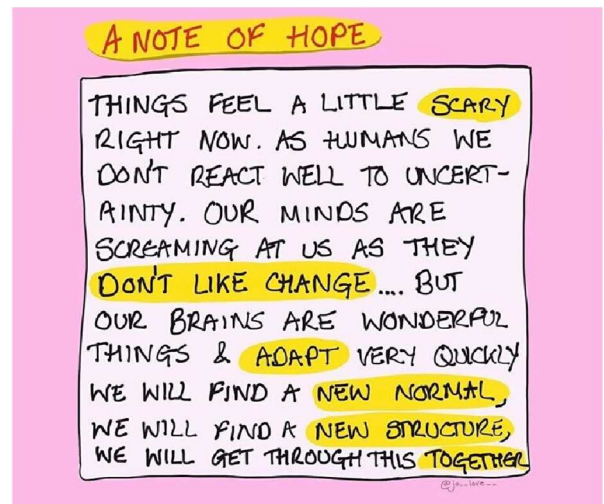 A NOTE OF HOPE
THINGS FEEL A LITTLE SCARY
RIGHT NOW. AS HUMANS WE
DON'T REACT WELL TO UNCERT-
AINTY. OUR MINDS ARE
SCREAMING AT US AS THEY
DON'T LIKE CHANGE.... BUT
OUR BRAINS ARE WONDERFUL
THINGS & ADAPT VERY QUICKLY
WE WILL FIND A NEW NORMAL,
WE WILL FIND A NEW STRUCTURE,
WE WILL GET THROUGH THIS TOGETHER